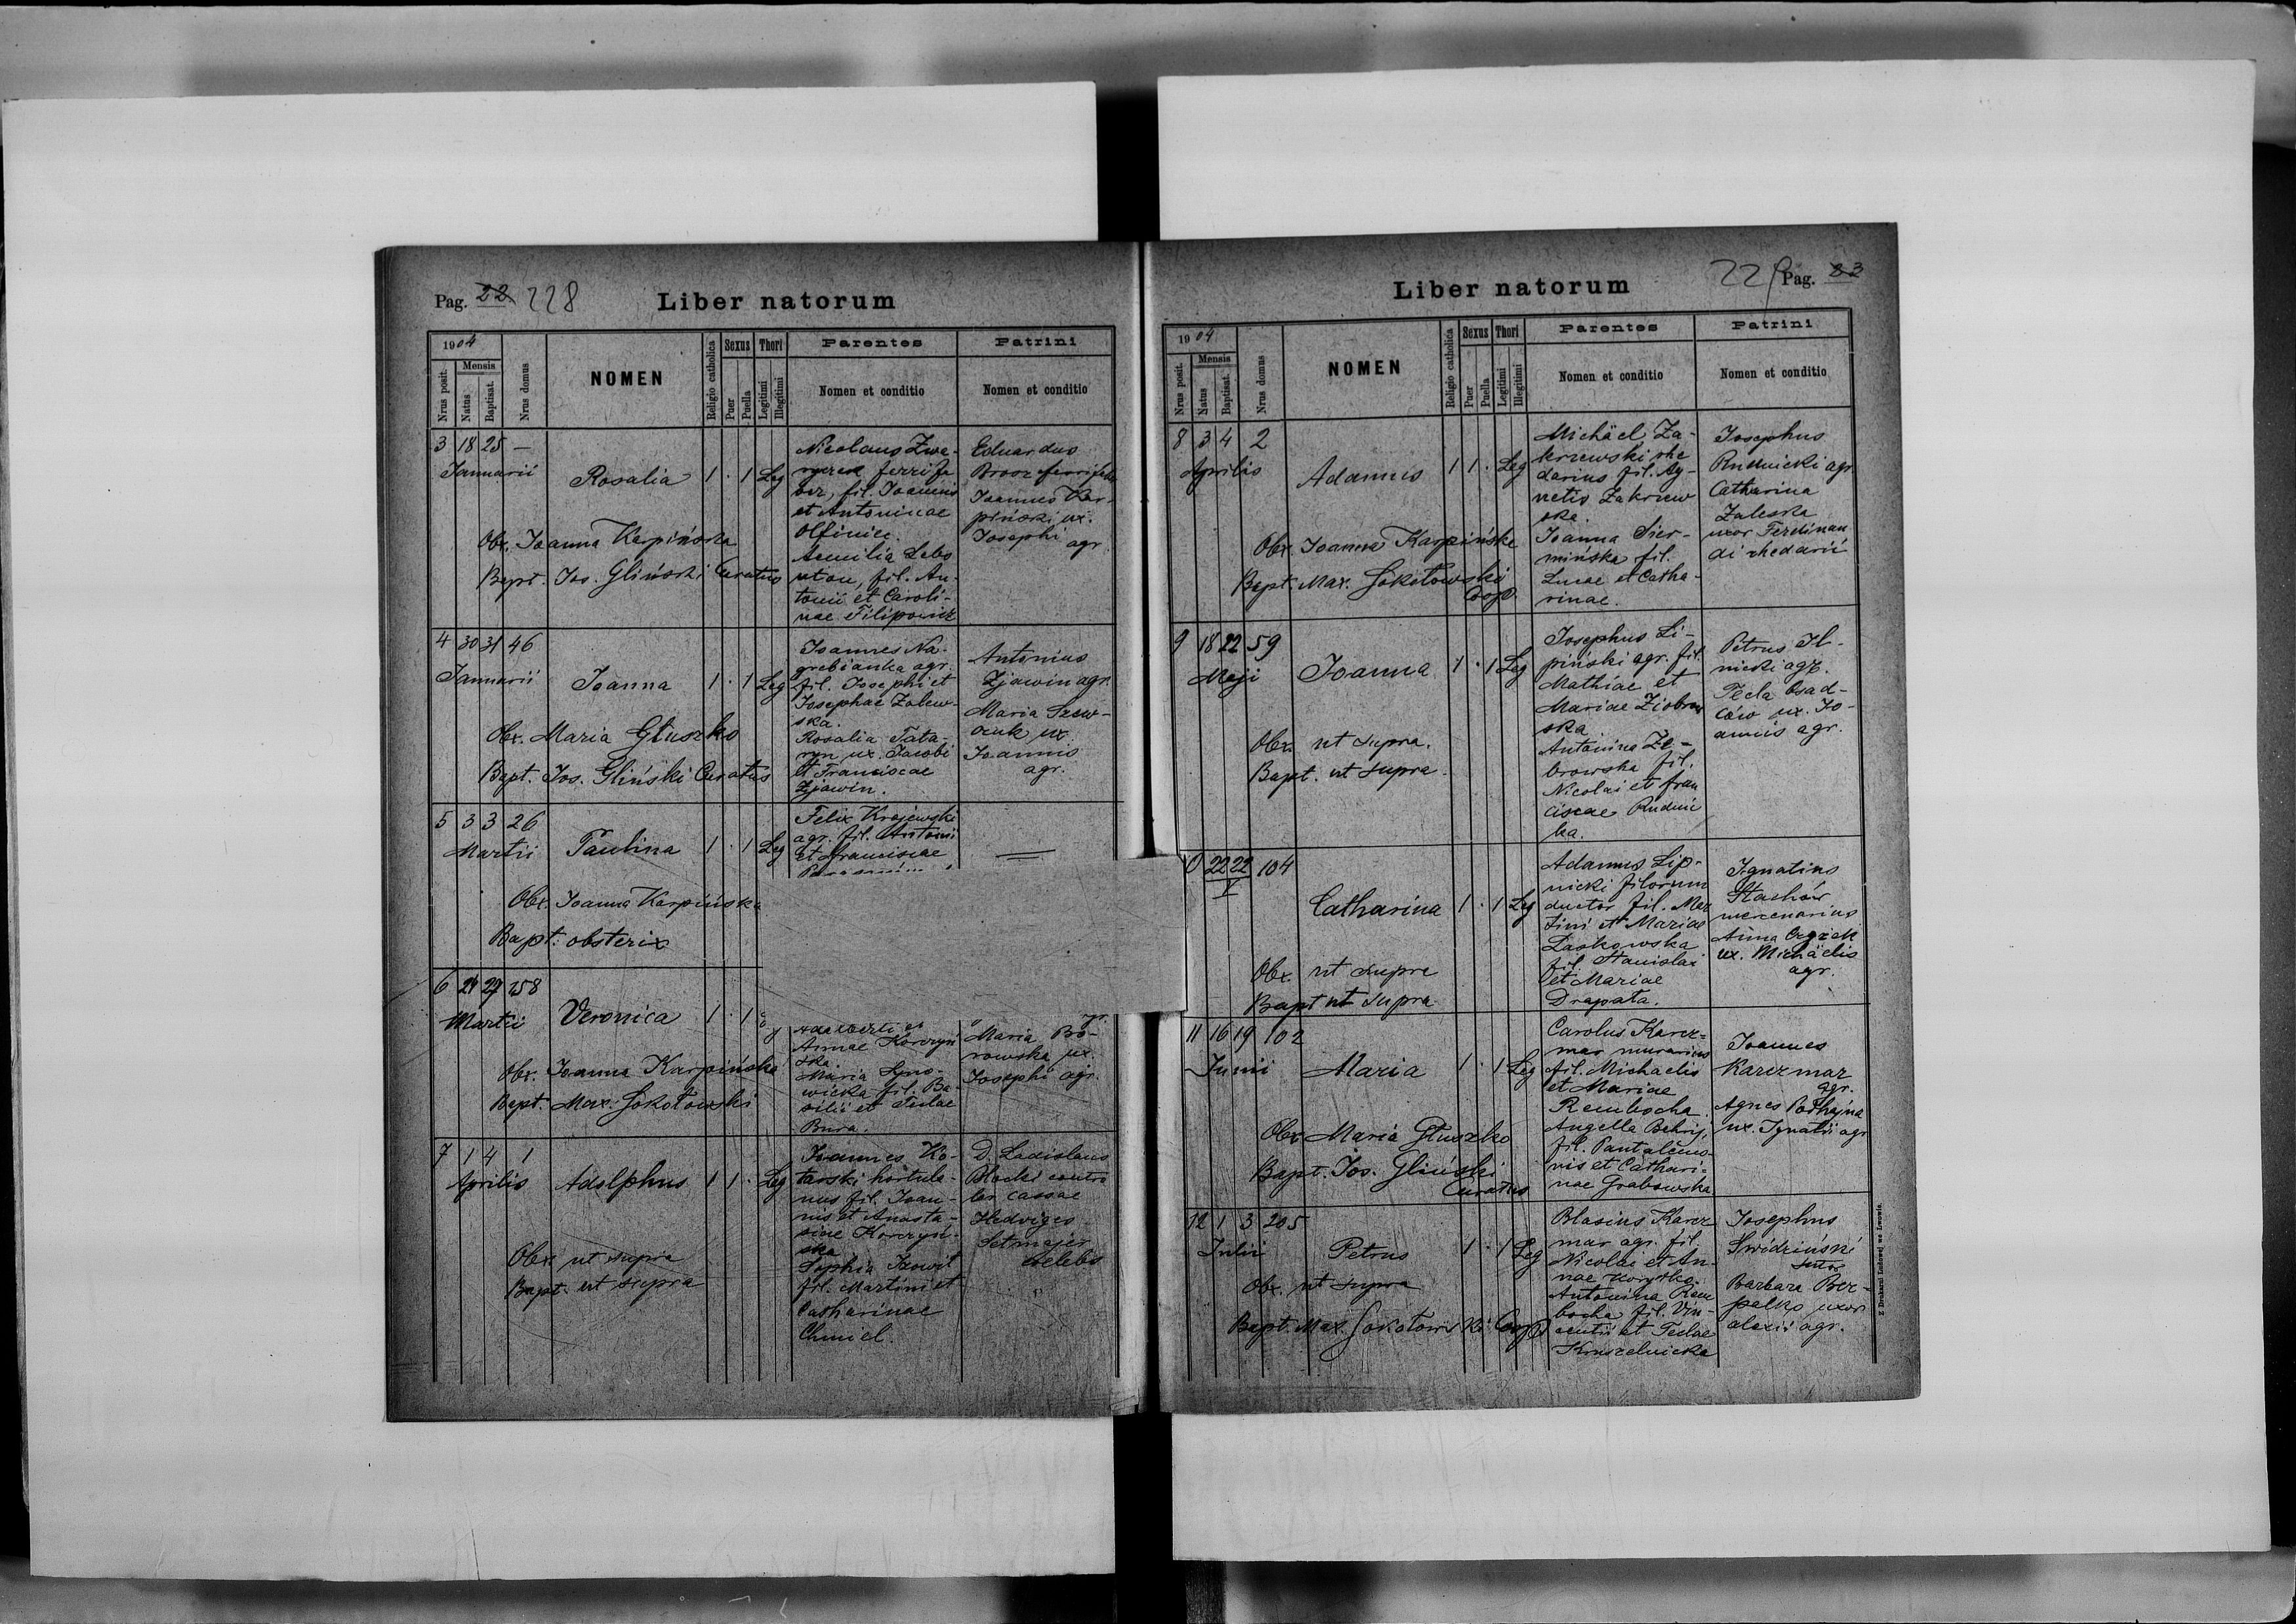 Pag. 22 228 Liber natorum
1904
Nrus posit.
Mensis
Natus
Baptisat.
Nrus domus
NOMEN
Religio catholica
Sexus
Puer
Puella
Thori
Legitimi
Illegitimi
Parentes
Nomen et conditio
Patrini
Nomen et conditio
3 18 25 —
Januarii
Rosalia 1 · 1 Leg
Obx. Joanna Karpińska
Bapt. Jos. Gliński Curatus
Nicolaus
ferri fa
ber, fil. Joannis
et Antoninae
Olfiniec.
Aemilia
fil. An-
tonii et Caroli-
nae Filipowicz
Eduardus
Brosz
Joannes Kar-
piński ux.
Josephi agr.
4 30 31 46
Januarii
Joanna 1 · 1 Leg
Obx. Maria Głuszko
Bapt. Jos. Gliński Curatus
Joannes Na-
grebianka agr.
fil. Josephi et
Josephae Zalew-
ska.
Rosalia Tata-
ryn ux. Jacobi
et Franciscae
Zjawin.
Antonius
Zjawin agr.
Maria Szew-
czuk ux.
Joannis
agr.
5 3 3 26
Martii
Paulina 1 · 1 Leg
Obx. Joanna Karpińska
Bapt. obsterix
Felix Krajewski
agr. fil. Antonii
et Franciscae
—
6 24 27 158
Martii
Veronica 1 · 1
Obx. Joanna Karpińska
Bapt. Max. Sokołowski
Adalberti et
Annae Korczyń
ska.
Maria Lino-
wicka fil. Ba-
silii et Teclae
Bura.
Maria Bo-
rowska ux.
Josephi agr.
7 1 4 1
Aprilis
Adolphus 1 1 · Leg
Obx. ut supra
Bapt. ut supra
Joannes Ko-
tarski hortula-
nus fil. Joan-
nis et Anasta-
siae Korczyń-
ska
Sophia
fil. Martini et
Catharinae
Chmiel.
D. Ladislaus
Błocki contro
lor cassae
Hedviges
Setmajer
celebs
Liber natorum 229 Pag. 23
1904
Nrus posit.
Mensis
Natus
Baptisat.
Nrus domus
NOMEN
Religio catholica
Sexus
Puer
Puella
Thori
Legitimi
Illegitimi
Parentes
Nomen et conditio
Patrini
Nomen et conditio
8 3 4 2
Aprilis
Adamus 1 1 · Leg
Obx. Joanna Karpińska
Bapt. Max. Sokołowski
Coop.
Michäel Za-
krzewski rhe
darius fil. Ag-
netis Zakrzew
ska.
Joanna Sier-
mińska fil.
Lucae et Catha-
rinae.
Josephus
Rudnicki agr.
Catharina
Zaleska
uxor Ferdinan
di rhedarii
9 18 22 59
Maji
Joanna 1 · 1 Leg
Obx. ut supra.
Bapt. ut supra.
Josephus Li-
piński agr. fil.
Mathiae et
Mariae Ziobrow
ska
Antonina Ze-
browska fil.
Nicolai et Fran
ciscae Rudnic
ka.
Petrus Il-
nicki agr.
Tecla Osad-
ców ux. Jo-
annis agr.
10 22 22 104
V
Catharina 1 · 1 Leg
Obx. ut supra
Bapt ut supra
Adamus Lip-
nicki filorum
ductor fil. Mar
tini et Mariae
Laskowska
fil. Stanislai
et Mariae
Drapata.
Ignatius
Stachów
mercenarius
Anna
ux. Michäelis
agr.
11 16 19 102
Junii
Maria 1 · 1 Leg
Obx. Maria Głuszko
Bapt. Jos. Gliński
Curatus
Carolus Karcz-
mar murarius
fil. Michaelis
et Mariae
Rembocha.
Angella Behrij,
fil. Pantalemo-
nis et Cathari-
nae Grabowska
Joannes
Karczmar
agr.
Agnes Podhajna
ux. Ignatii agr
12 1 3 205
Julii
Petrus 1 · 1 Leg
Obx. ut supra
Bapt. Max. Sokołowski Coop
Blasius Karcz
mar agr. fil.
Nicolai et An-
nae Korytko.
Antonina Rem
bocha fil. Vin-
centii et Teclae
Kruszelnicka
Josephus
Swidziński
sutor
Barbara Bez-
palko uxor
alexii agr.
Z Drukarni Ludowej we Lwowie.